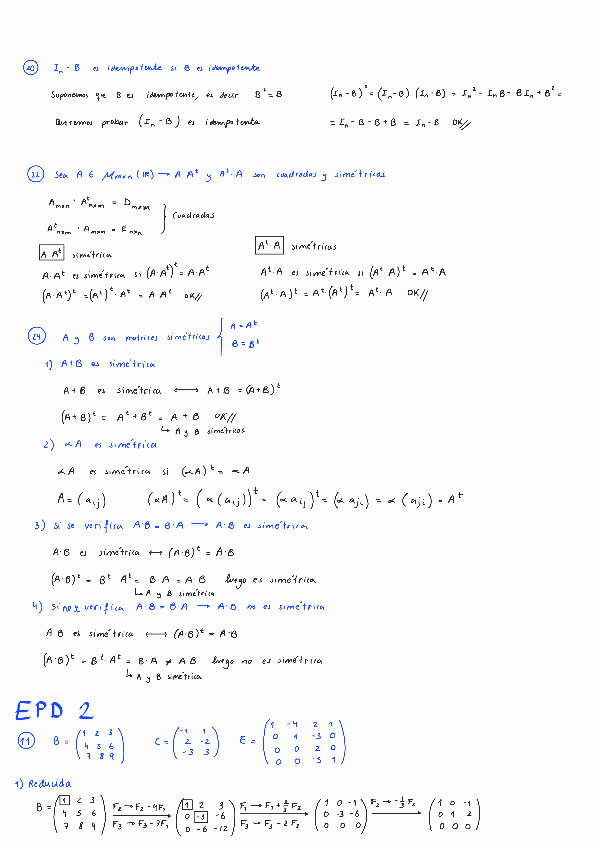 20 Iₙ - B es idempotente si B es idempotente
Suponemos que B es idempotente, es decir B² = B
(Iₙ - B)² = (Iₙ - B) (Iₙ - B) = Iₙ² - IₙB - BIₙ + B² =
Queremos probar (Iₙ - B) es idempotente
= Iₙ - B - B + B = Iₙ - B OK//
22 Sea A ∈ Mₘₓₙ (IR) → A·Aᵗ y Aᵗ·A son cuadradas y simétricas
Aₘₓₙ · Aᵗₙₓₘ = Dₘₓₘ
Aᵗₙₓₘ · Aₘₓₙ = Eₙₓₙ } Cuadradas
A·Aᵗ simétrica
A·Aᵗ es simétrica si (A·Aᵗ)ᵗ = A·Aᵗ
(A·Aᵗ)ᵗ = (Aᵗ)ᵗ · Aᵗ = A·Aᵗ OK//
Aᵗ·A simétricas
Aᵗ·A es simétrica si (Aᵗ·A)ᵗ = Aᵗ·A
(Aᵗ·A)ᵗ = Aᵗ·(Aᵗ)ᵗ = Aᵗ·A OK//
24 A y B son matrices simétricas { A = Aᵗ
B = Bᵗ
1) A+B es simétrica
A+B es simétrica ⟷ A+B = (A+B)ᵗ
(A+B)ᵗ = Aᵗ + Bᵗ = A + B OK//
↳ A y B simétricas
2) αA es simétrica
αA es simétrica si (αA)ᵗ = αA
A = (aᵢⱼ) (αA)ᵗ = (α(aᵢⱼ))ᵗ = (α aᵢⱼ)ᵗ = (α aⱼᵢ) = α (aⱼᵢ) = Aᵗ
3) Si se verifica A·B = B·A → A·B es simétrica
A·B es simétrica ⟷ (A·B)ᵗ = A·B
(A·B)ᵗ = Bᵗ Aᵗ = B·A = A·B luego es simétrica
↳ A y B simétrica
4) Si no verifica A·B = B·A → A·B no es simétrica
A·B es simétrica ⟷ (A·B)ᵗ = A·B
(A·B)ᵗ = Bᵗ·Aᵗ = B·A ≠ A·B luego no es simétrica
↳ A y B simétrica
EPD 2
11 B = (1 2 3 C = (-1 1 E = (1 -4 2 1
4 5 6 2 -2 0 1 -3 0
7 8 9) -3 3) 0 0 2 0
0 0 -5 1)
1) Reducida
B = (1 2 3 F₂ → F₂ - 4F₁ (1 2 3 F₁ → F₁ + ⅔ F₂ (1 0 -1 F₂ → -⅓ F₂ (1 0 -1
4 5 6 0 -3 -6 0 -3 -6 0 1 2
7 8 9) F₃ → F₃ - 7F₁ 0 -6 -12) F₃ → F₃ - 2F₂ 0 0 0) 0 0 0)